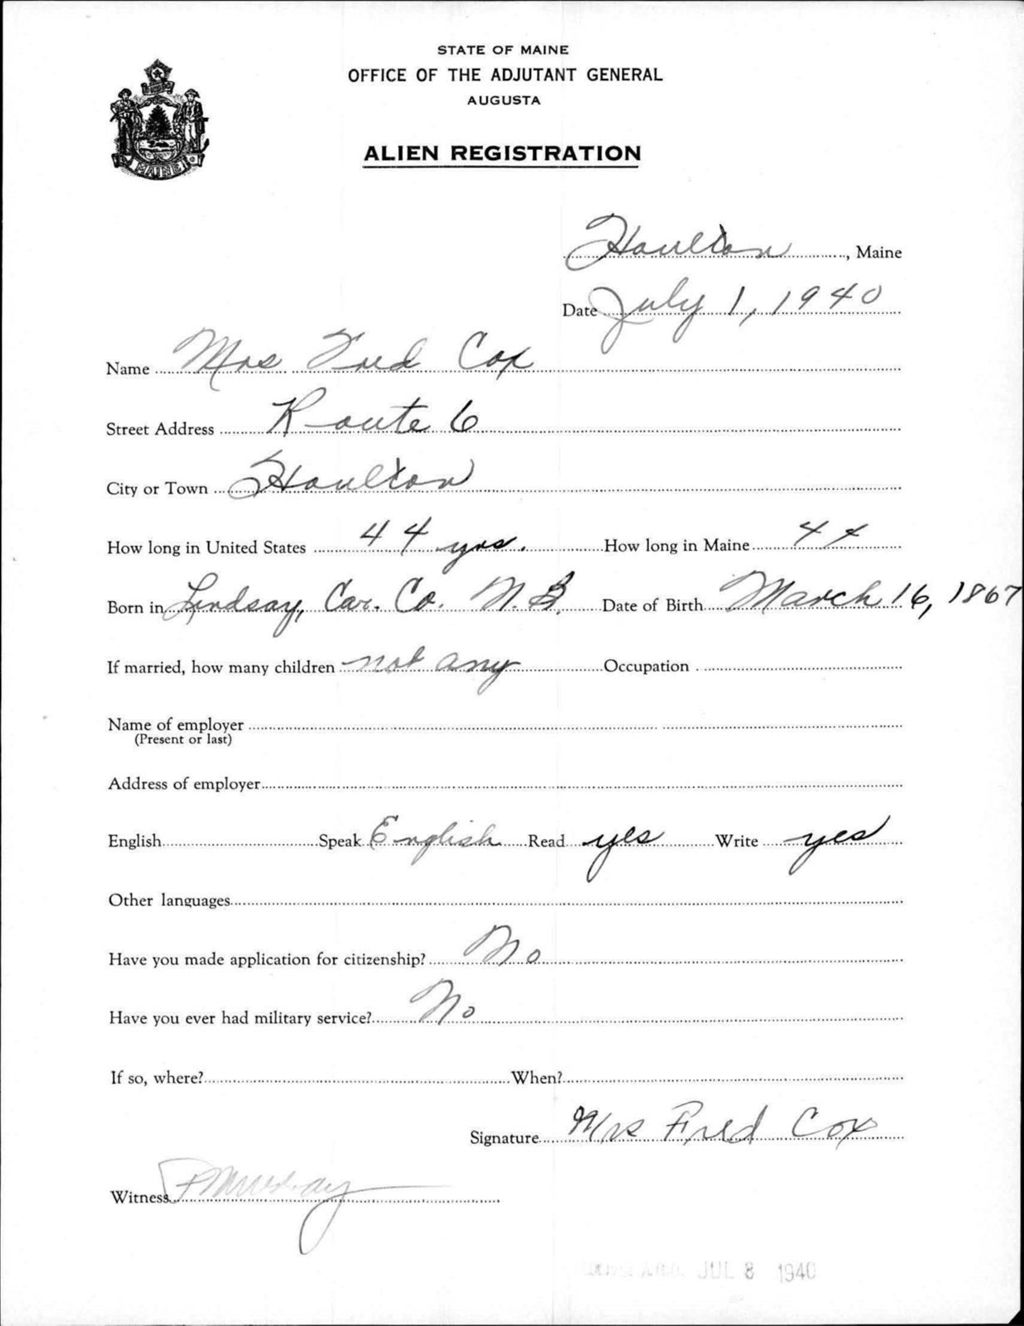 STATE OF MAINE
OFFICE OF THE ADJUTANT GENERAL
AUGUSTA
ALIEN REGISTRATION
MAINE
Houlton, Maine
Date July 1, 1940
Name Mrs Fred Cox
Street Address Route 6
City or Town Houlton
How long in United States 44 yrs. How long in Maine 44
Born in Lindsay, Car. Co. N.B. Date of Birth March 16, 1867
If married, how many children not any Occupation
Name of employer
(Present or last)
Address of employer
English Speak English Read yes Write yes
Other languages
Have you made application for citizenship? No
Have you ever had military service? No
If so, where? When?
Signature Mrs Fred Cox
Witness
JUL 8 1940